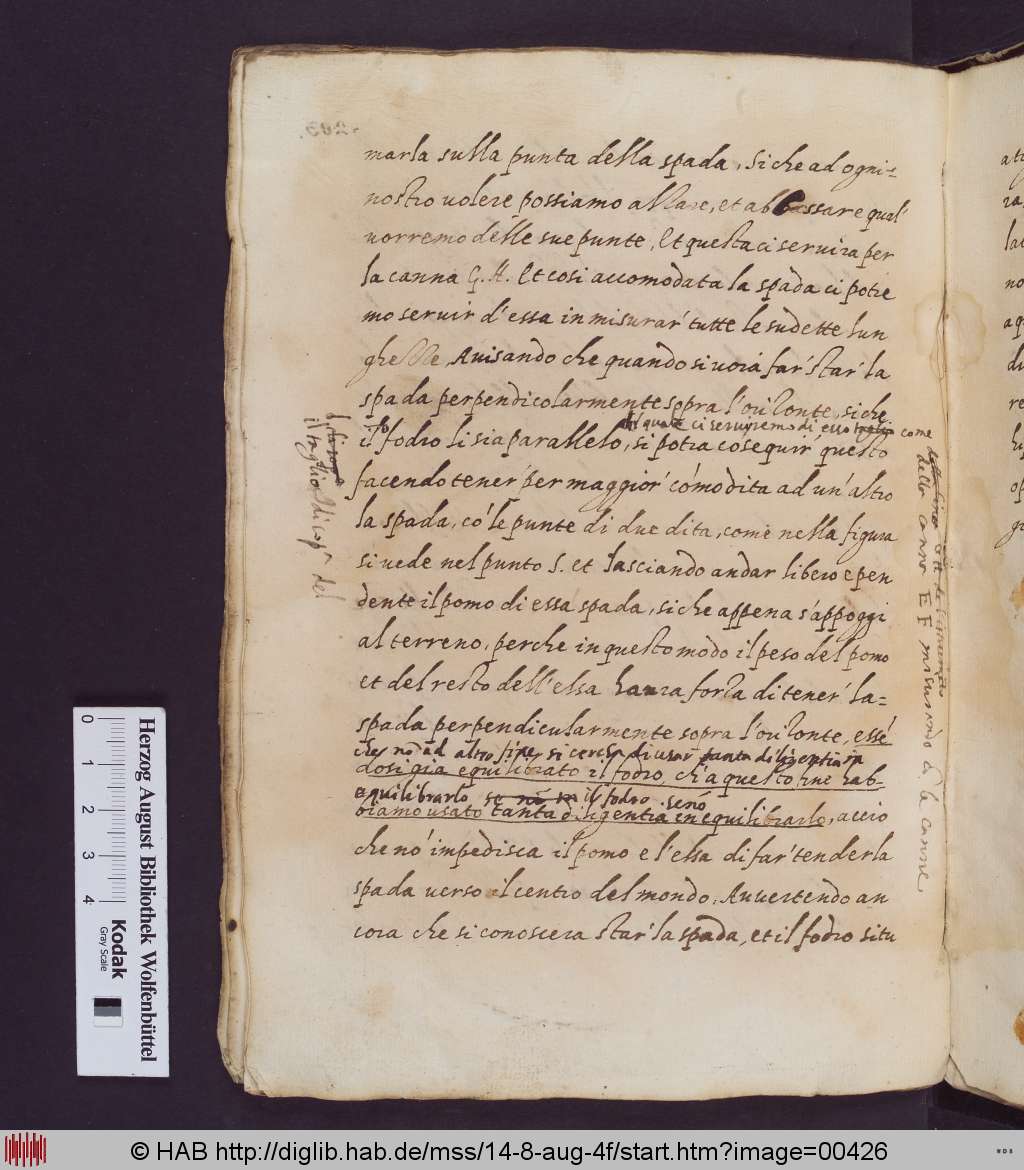 marla sulla punta della spada, si che ad ogni-
nostro uolere possiamo alzare, et abbassare qual'
uorremo delle sue punte, Et questa ci seruira per
la canna G. H. Et cosi accomodata la spada ci potre
mo seruir d'essa in misurar' tutte le sudette lun
ghezze, Auisando che quando si uorà far' star' la
spada perpendicolarmente sopra l'orizonte, si che
del quale ci seruiremo di esso taglio come
il fodro li sia parallelo, si potrà cósequir' questo
facendo tener' per maggior' cómodità ad un' altro
la spada, có le punte di due dita, come nella figura
si uede nel punto S. et lasciando andar libero e pen
dente il pomo di essa spada, si che appena s'appoggi
al terreno, perche in questo modo il peso del pomo
et del resto dell'elsa haura forza di tener' la-
spada perpendicularmente sopra l'orizonte, essé
che nó ad altro fine si cerca di usar tanta diligentia in
dosi gia equilibrato il fodro, ch'a questo fine hab-
equilibrarlo se nó in il fodro senó
biamo usato tanta diligentia in equilibrarlo, acciò
che nó impedisca il pomo e l'elsa di far' tender la
spada uerso il centro del mondo, Auuertendo an
cora che si conoscera star' la spada, et il fodro situ
il taglio di sopª del
della canna E F misurando cò la canna
0 1 2 3 4
Herzog August Bibliothek Wolfenbüttel
Kodak
Gray Scale
© HAB http://diglib.hab.de/mss/14-8-aug-4f/start.htm?image=00426